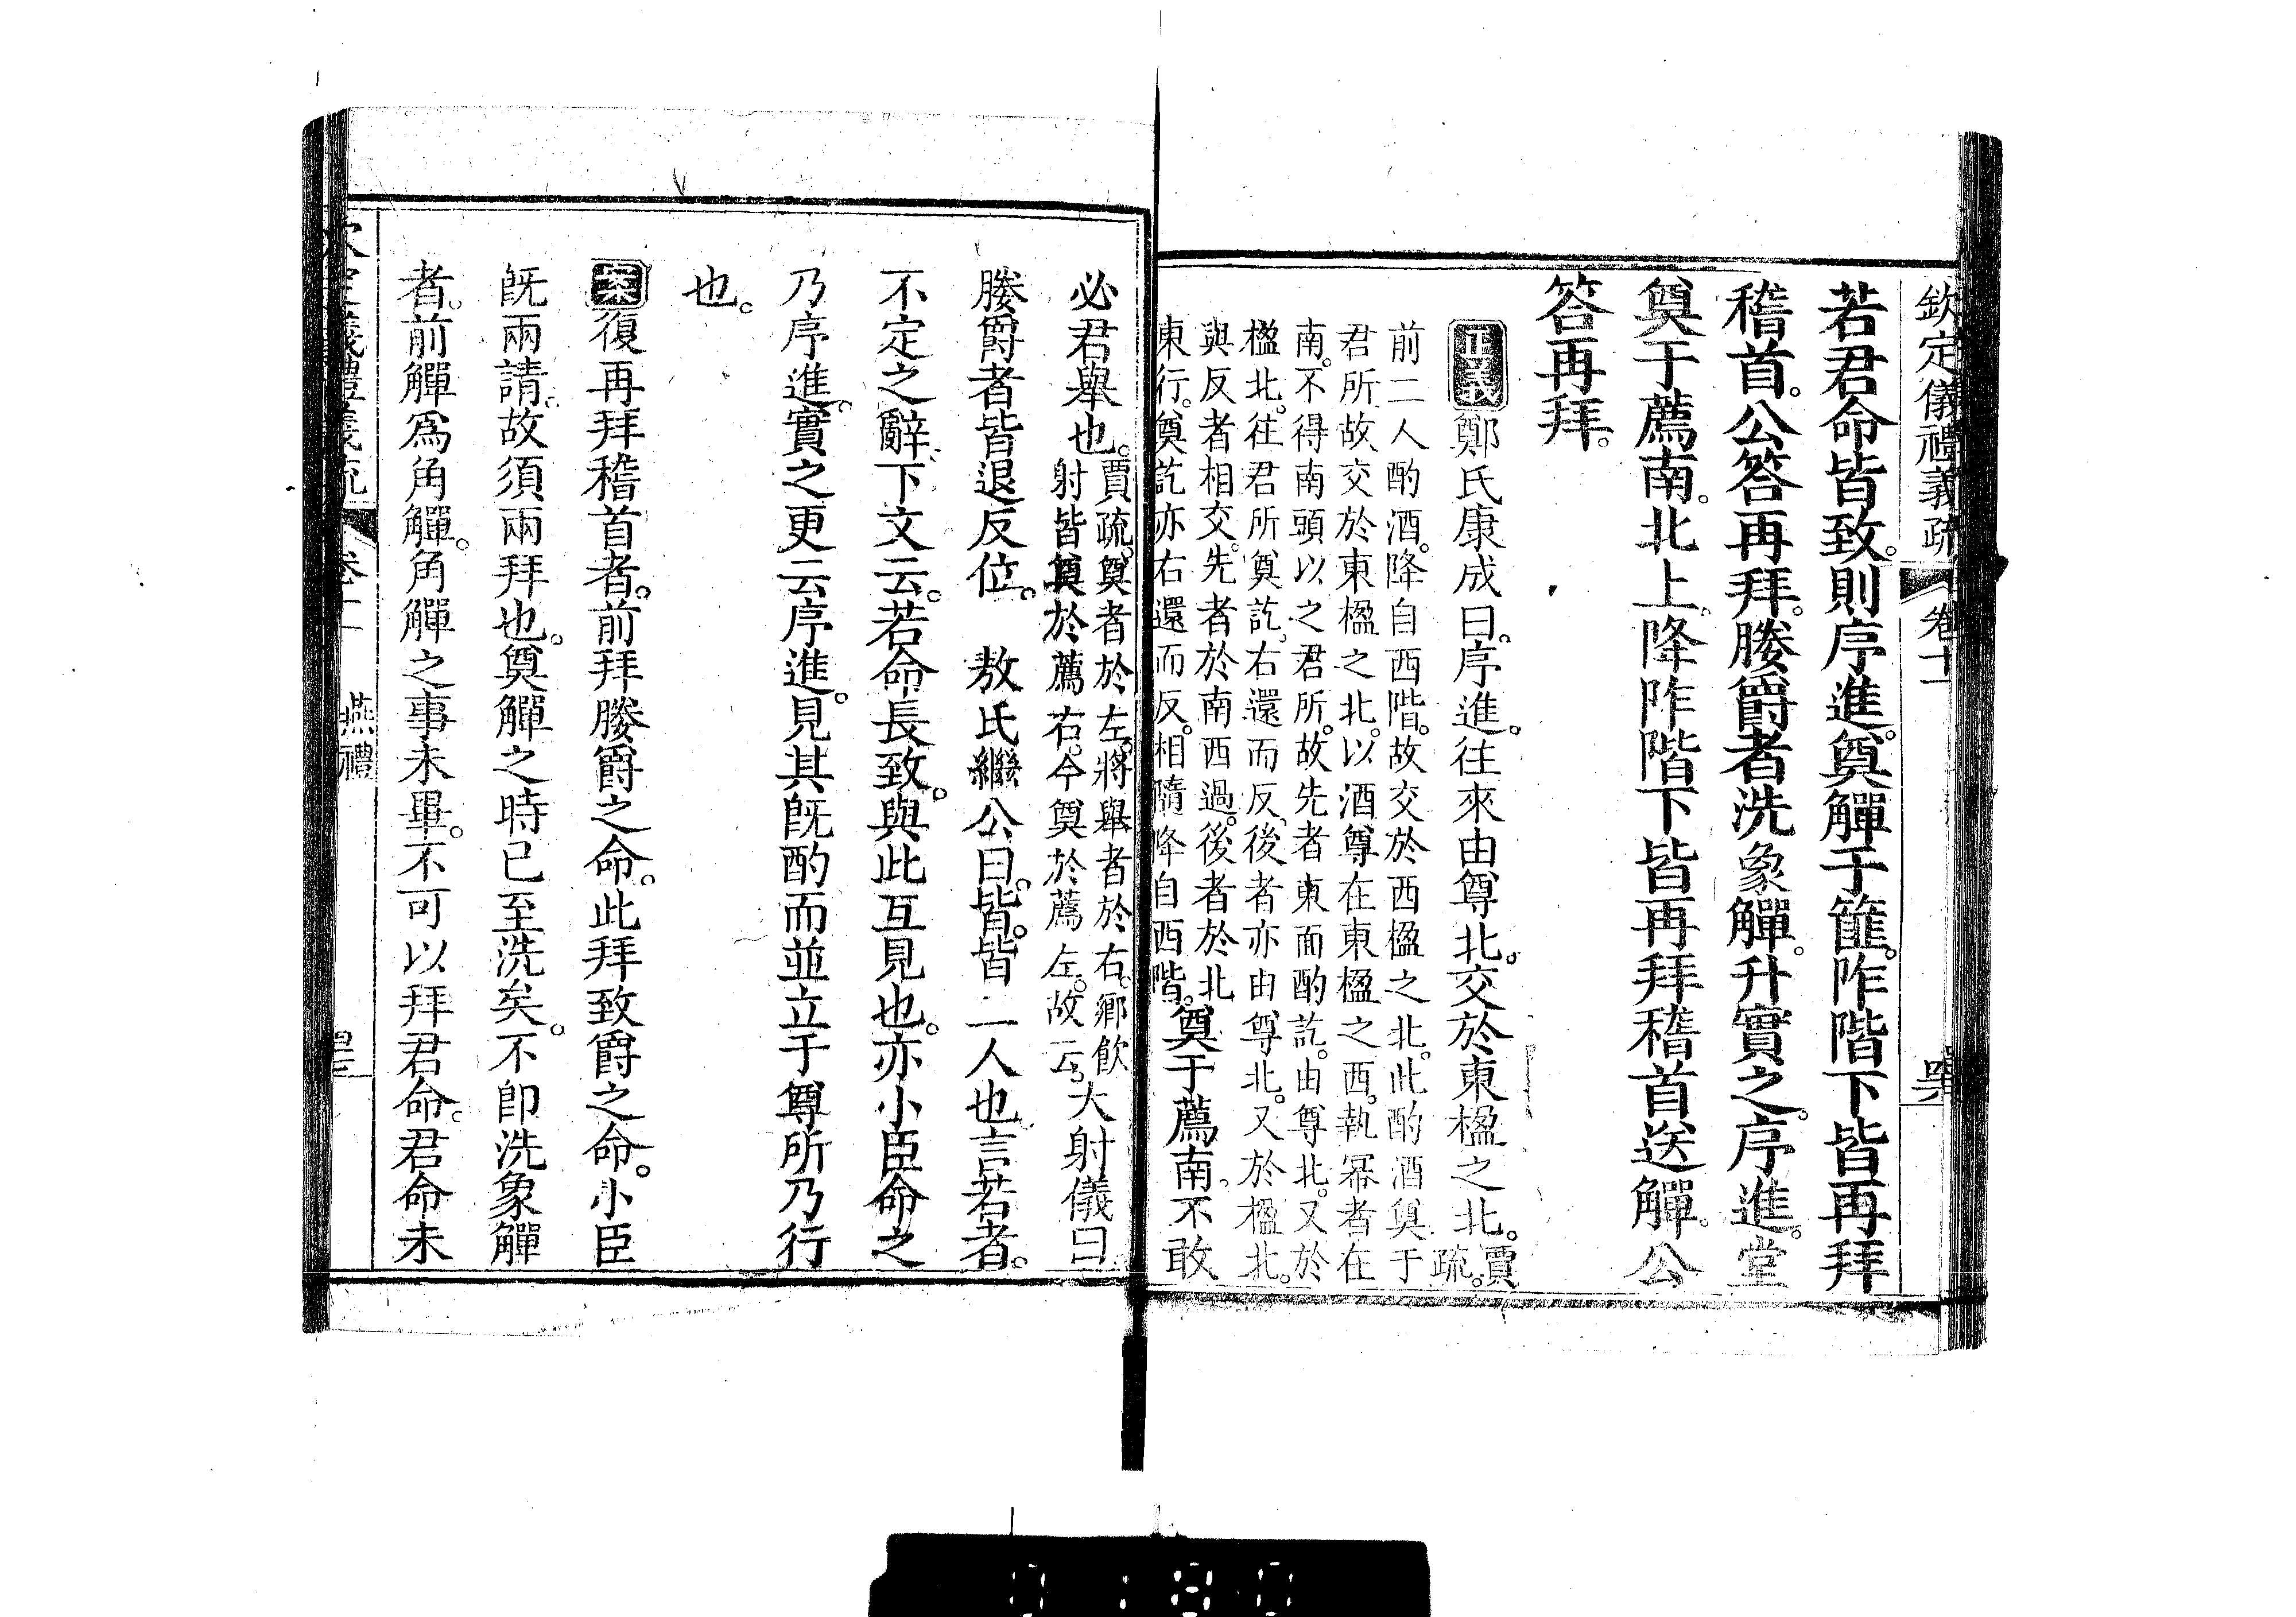 欽定儀禮義疏 卷十一
若君命皆致。則序進。奠觶于篚。阼階下皆再拜
稽首。公答再拜。媵爵者洗象觶。升實之。序進。堂
奠于薦南。北上。降阼階下皆再拜稽首送觶。公
答再拜。
正義鄭氏康成曰。序進。往來由尊北。交於東楹之北。賈疏。
前二人酌酒。降自西階。故交於西楹之北。此酌酒奠于
君所。故交於東楹之北。以酒尊在東楹之西。執冪者在
南。不得南頭以之君所。故先者東面酌訖。由尊北。又於
楹北。往君所奠訖。右還而反。後者亦由尊北。又於楹北。
與反者相交。先者於南西過。後者於北
東行。奠訖亦右還而反。相隨降自西階。奠于薦南。不敢
必君舉也。賈疏。奠者於左。將舉者於右。鄉飲
射皆奠於薦右。今奠於薦左。故云。大射儀曰
媵爵者皆退反位。 敖氏繼公曰。皆。皆二人也。言若者。
不定之辭。下文云。若命長致。與此互見也。亦小臣命之
乃序進。實之更云序進。見其既酌而並立于尊所乃行
也。
案復再拜稽首者。前拜媵爵之命。此拜致爵之命。小臣
既兩請。故須兩拜也。奠觶之時已至洗矣。不即洗象觶
者。前觶為角觶。角觶之事未畢。不可以拜君命。君命未
燕禮